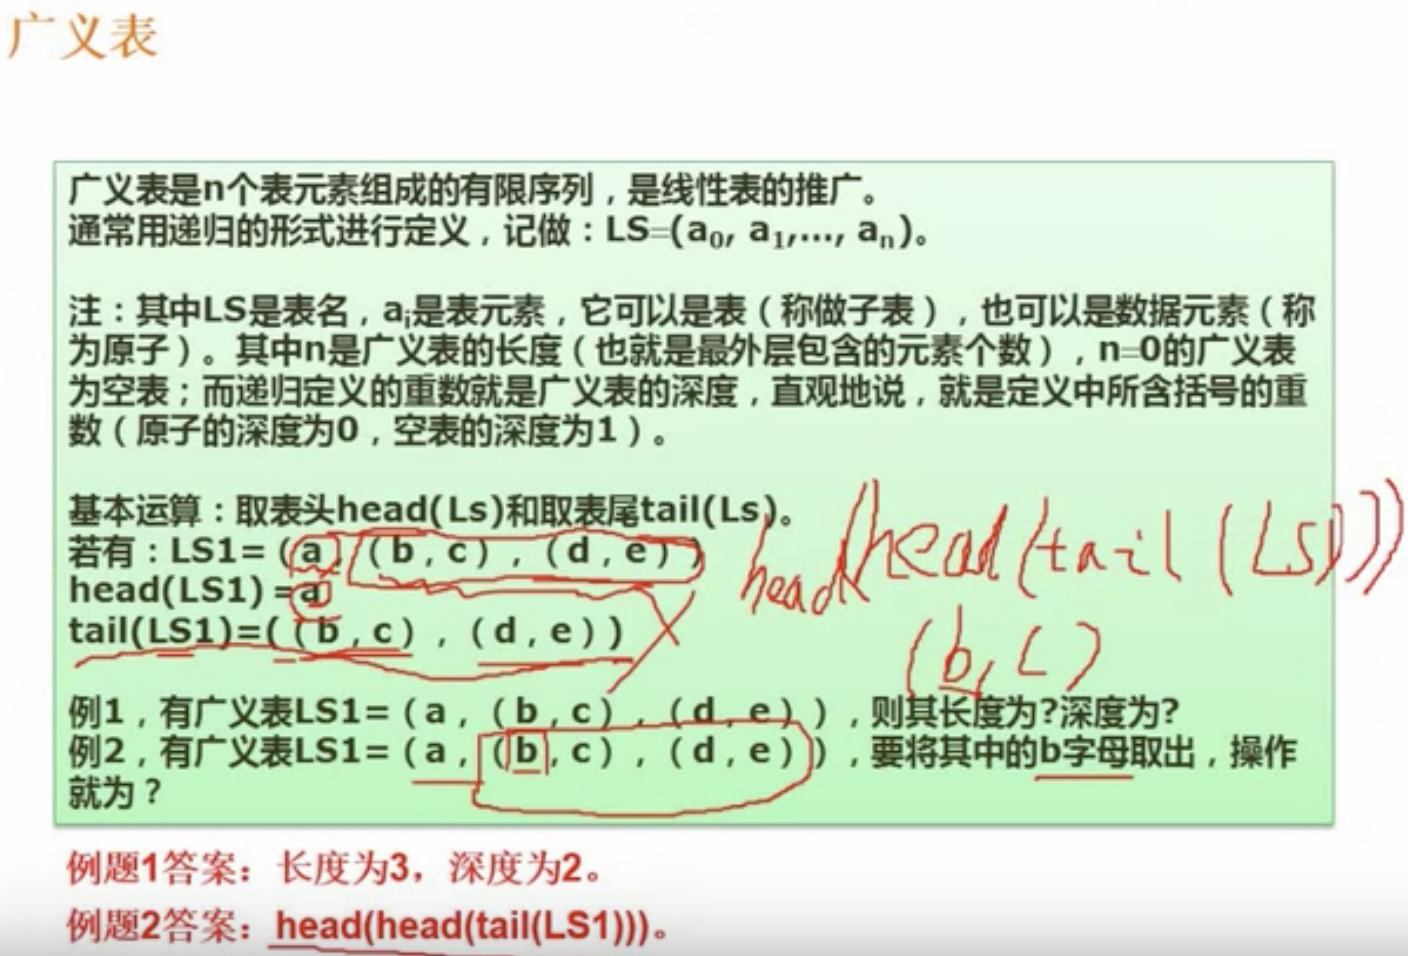 广义表
广义表是n个表元素组成的有限序列，是线性表的推广。
通常用递归的形式进行定义，记做：LS=(a₀, a₁,..., aₙ)。
注：其中LS是表名，aᵢ是表元素，它可以是表（称做子表），也可以是数据元素（称
为原子）。其中n是广义表的长度（也就是最外层包含的元素个数），n=0的广义表
为空表；而递归定义的重数就是广义表的深度，直观地说，就是定义中所含括号的重
数（原子的深度为0，空表的深度为1）。
基本运算：取表头head(Ls)和取表尾tail(Ls)。
若有：LS1=（a，（b，c），（d，e））
head(LS1)=a
tail(LS1)=(（b，c），（d，e））
head(head(tail(LS1)))
(b,c)
例1，有广义表LS1=（a，（b，c），（d，e）），则其长度为?深度为?
例2，有广义表LS1=（a，（b，c），（d，e）），要将其中的b字母取出，操作
就为？
例题1答案：长度为3，深度为2。
例题2答案：head(head(tail(LS1)))。